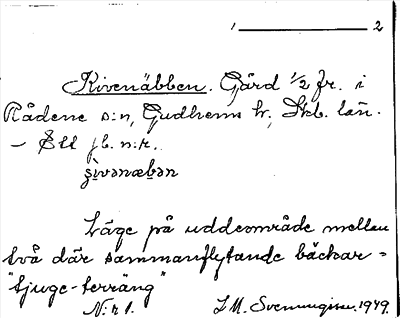 1 2
Kivenäbben. Gård 1/2 fr. i
Rådene s:n, Gudhems hr, Skb. län.
– Ell jb. n:r.
Läge på uddeområde mellan
två där sammanflytande bäckar =
"tjuge-terräng"
N:r 1. I.M. Svenningson. 1949.